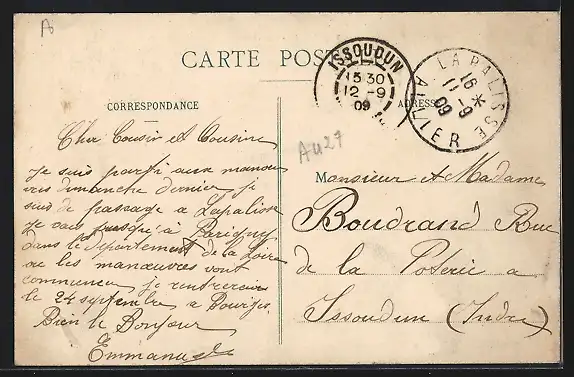 A
CARTE POSTALE
ISSOUDUN
15 30
12 - 9
09
LAPALISSE
16
11 - 9
09
ALLIER
CORRESPONDANCE
ADRESSE
AU27
Cher Cousin et Cousine
Je suis parti aux manœu
vres dimanche dernier, je
suis de passage a Lapalisse
Je vais jusqu'a Parigny
dans le département de la Loire
ou les manœuvres vont
commencer je rentrerai
le 24 septembre a Bourges
Bien le Bonjour
Emmanuel
Monsieur et Madame
Boudrand Rue
de la Poterie a
Issoudun (Indre)